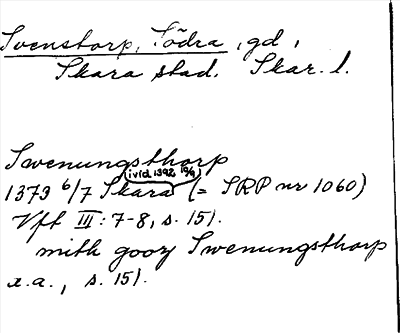 Svenstorp, Södra, gd,
Skara stad. Skar. l.
Swenungsthorp
(i vid. 1392
1373 6/7 Skara (= SRP nr 1060)
Vft III: 7-8, s. 151.
mith gooz Swenungsthorp
x.a., s. 151.